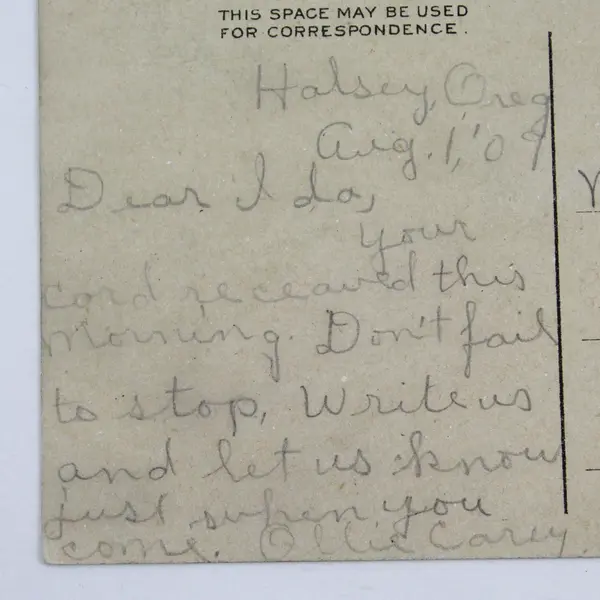 THIS SPACE MAY BE USED
FOR CORRESPONDENCE.
Halsey, Oreg
Aug. 1, '09
Dear Ida,
your
card receaved this
morning. Don't fail
to stop, Write us
and let us know
just when you
come. Ollie Carey.